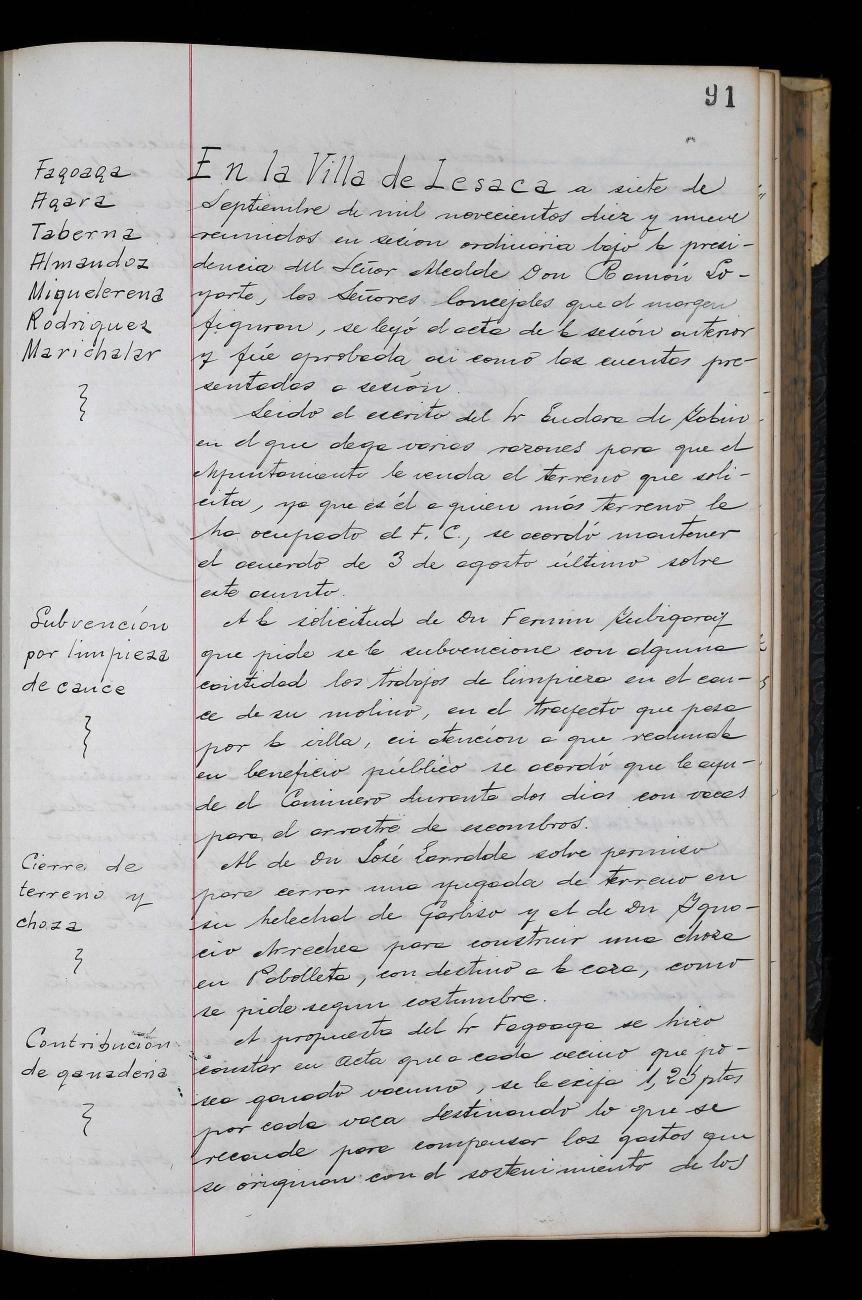 91
Fagoaga
Agara
Taberna
Almandoz
Miquelerena
Rodriguez
Marichalar
En la Villa de Lesaca a siete de
Septiembre de mil novecientos diez y nueve
reunidos en sesión ordinaria bajo la presi-
dencia del Señor Alcalde Don Ramón Lo-
yarte, los Señores Concejales que al margen
figuran, se leyó el acta de la sesión anterior
y fué aprobada asi como las cuentas pre-
sentadas a sesión.
Leido el escrito del Sr Endara de
en el que alega varias razones para que el
Ayuntamiento le venda el terreno que soli-
cita, ya que es él a quien más terreno le
ha ocupado el F. C., se acordó mantener
el acuerdo de 3 de agosto último sobre
este asunto.
Subvención
por limpieza
de cauce
A la solicitud de Dn Fermin
que pide se le subvencione con alguna
cantidad los trabajos de limpieza en el cau-
ce de su molino, en el trayecto que pasa
por la villa, en atención a que redunda
en beneficio público se acordó que le ayu-
de el Caminero durante dos dias con vacas
para el arrastre de escombros.
Cierre de
terreno y
choza
Al de Dn José Larralde sobre permiso
para cerrar una yugada de terreno en
su helechal de Garbiso y al de Dn Igna-
cio Arrechea para construir una choza
en Pobolleta, con destino a la caza, como
se pide segun costumbre.
Contribución
de ganaderia
A propuesta del Sr Fagoaga se hizo
constar en acta que a cada vecino que po-
sea ganado vacuno, se le exija 1,25 ptas
por cada vaca destinando lo que se
recaude para compensar los gastos que
se originan con el sostenimiento de los